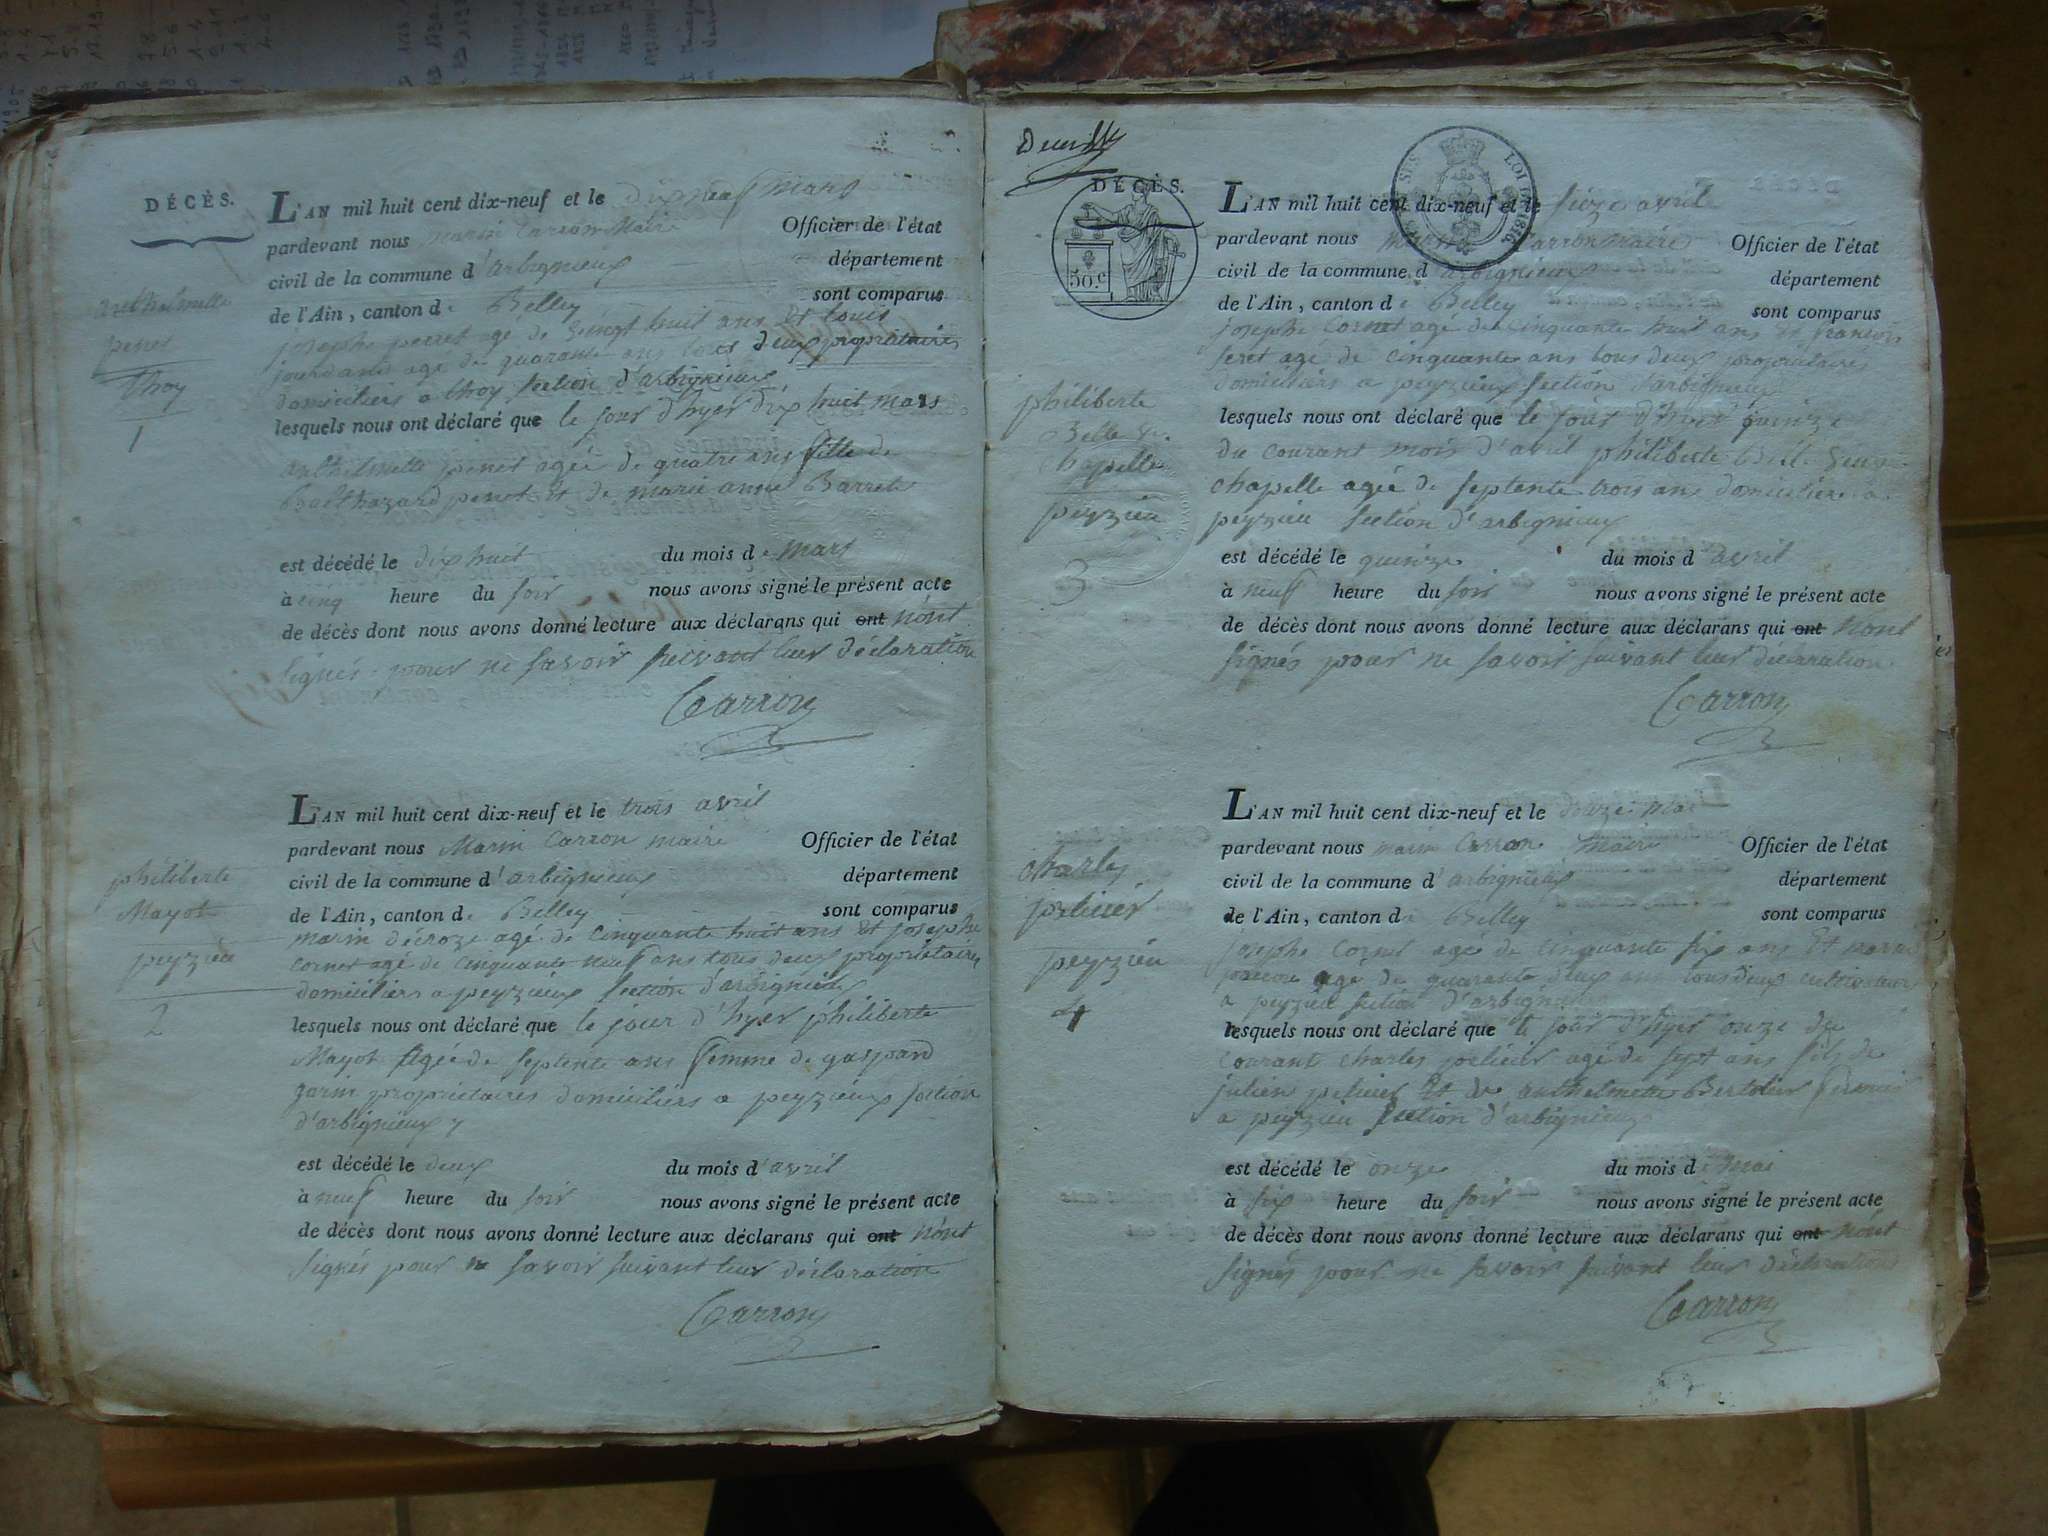 DÉCÈS.
L'AN mil huit cent dix-neuf et le dix neuf mars
pardevant nous marin Carron Maire Officier de l'état
civil de la commune d'arbignieux département
de l'Ain, canton de Belley sont comparus
josephe perret agé de vingt huit ans et louis
jourdand agé de quarante ans tous deux propriétaires
domiciliers a thoy section d'arbignieux
lesquels nous ont déclaré que le jour d'hyer dix huit mars
anthelmette penet agée de quatre ans fille de
Balthazard penet et de marie anne Barret
est décédé le dix huit du mois de mars
à cinq heure du soir nous avons signé le présent acte
de décès dont nous avons donné lecture aux déclarans qui ont n'ont
signés pour ne savoir suivant leur déclaration
Carron
penet
thoy
1
L'AN mil huit cent dix-neuf et le trois avril
pardevant nous Marin Carron maire Officier de l'état
civil de la commune d'arbignieux département
de l'Ain, canton de Belley sont comparus
marin decroze agé de cinquante huit ans et josephe
cornet agé de cinquante neuf ans tous deux propriétaires
domiciliers a peyzieux section d'arbignieux
lesquels nous ont déclaré que le jour d'hyer philiberte
Mayot agée de septente ans femme de gaspard
garin propriétaires domiciliers a peyzieux section
d'arbignieux
est décédé le deux du mois d'avril
à neuf heure du soir nous avons signé le présent acte
de décès dont nous avons donné lecture aux déclarans qui ont n'ont
signés pour ne savoir suivant leur déclaration
Carron
philiberte
Mayot
peyzieu
2
DÉCÈS.
50.c
LOI DE 1816.
L'AN mil huit cent dix-neuf et le seize avril
pardevant nous marin Carron maire Officier de l'état
civil de la commune d'arbignieux département
de l'Ain, canton de Belley sont comparus
josephe Cornet agé de cinquante huit ans et francois
seret agé de cinquante ans tous deux propriétaires
domiciliers a peyzieux section d'arbignieux
lesquels nous ont déclaré que le jour d'hier quinze
du courant mois d'avril philiberte Belle
chapelle agée de septente trois ans domiciliere a
peyzieu section d'arbignieux
est décédé le quinze du mois d'avril
à neuf heure du soir nous avons signé le présent acte
de décès dont nous avons donné lecture aux déclarans qui ont n'ont
signés pour ne savoir suivant leur déclaration
Carron
philiberte
Belle
chapelle
peyzieu
3
L'AN mil huit cent dix-neuf et le douze mai
pardevant nous marin Carron maire Officier de l'état
civil de la commune d'arbignieux département
de l'Ain, canton de Belley sont comparus
josephe Cornet agé de cinquante six ans Et marin
agé de quarante deux ans tous deux cultivateurs
a peyzieu section d'arbignieux
lesquels nous ont déclaré que le jour d'hyer onze du
courant charles pelicier agé de sept ans fils de
julien pelicier et de anthelmette Bertelier
a peyzieu section d'arbignieux
est décédé le onze du mois de mai
à six heure du soir nous avons signé le présent acte
de décès dont nous avons donné lecture aux déclarans qui ont n'ont
signés pour ne savoir suivant leur déclaration
Carron
charles
pelicier
peyzieu
4